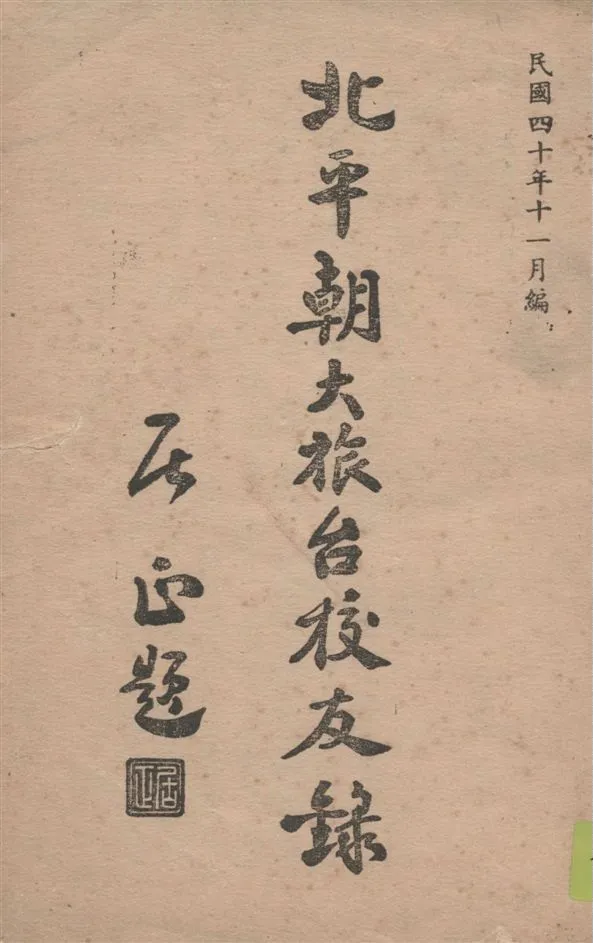 民國四十年十一月編
北平朝大旅台校友錄
居正題
居正